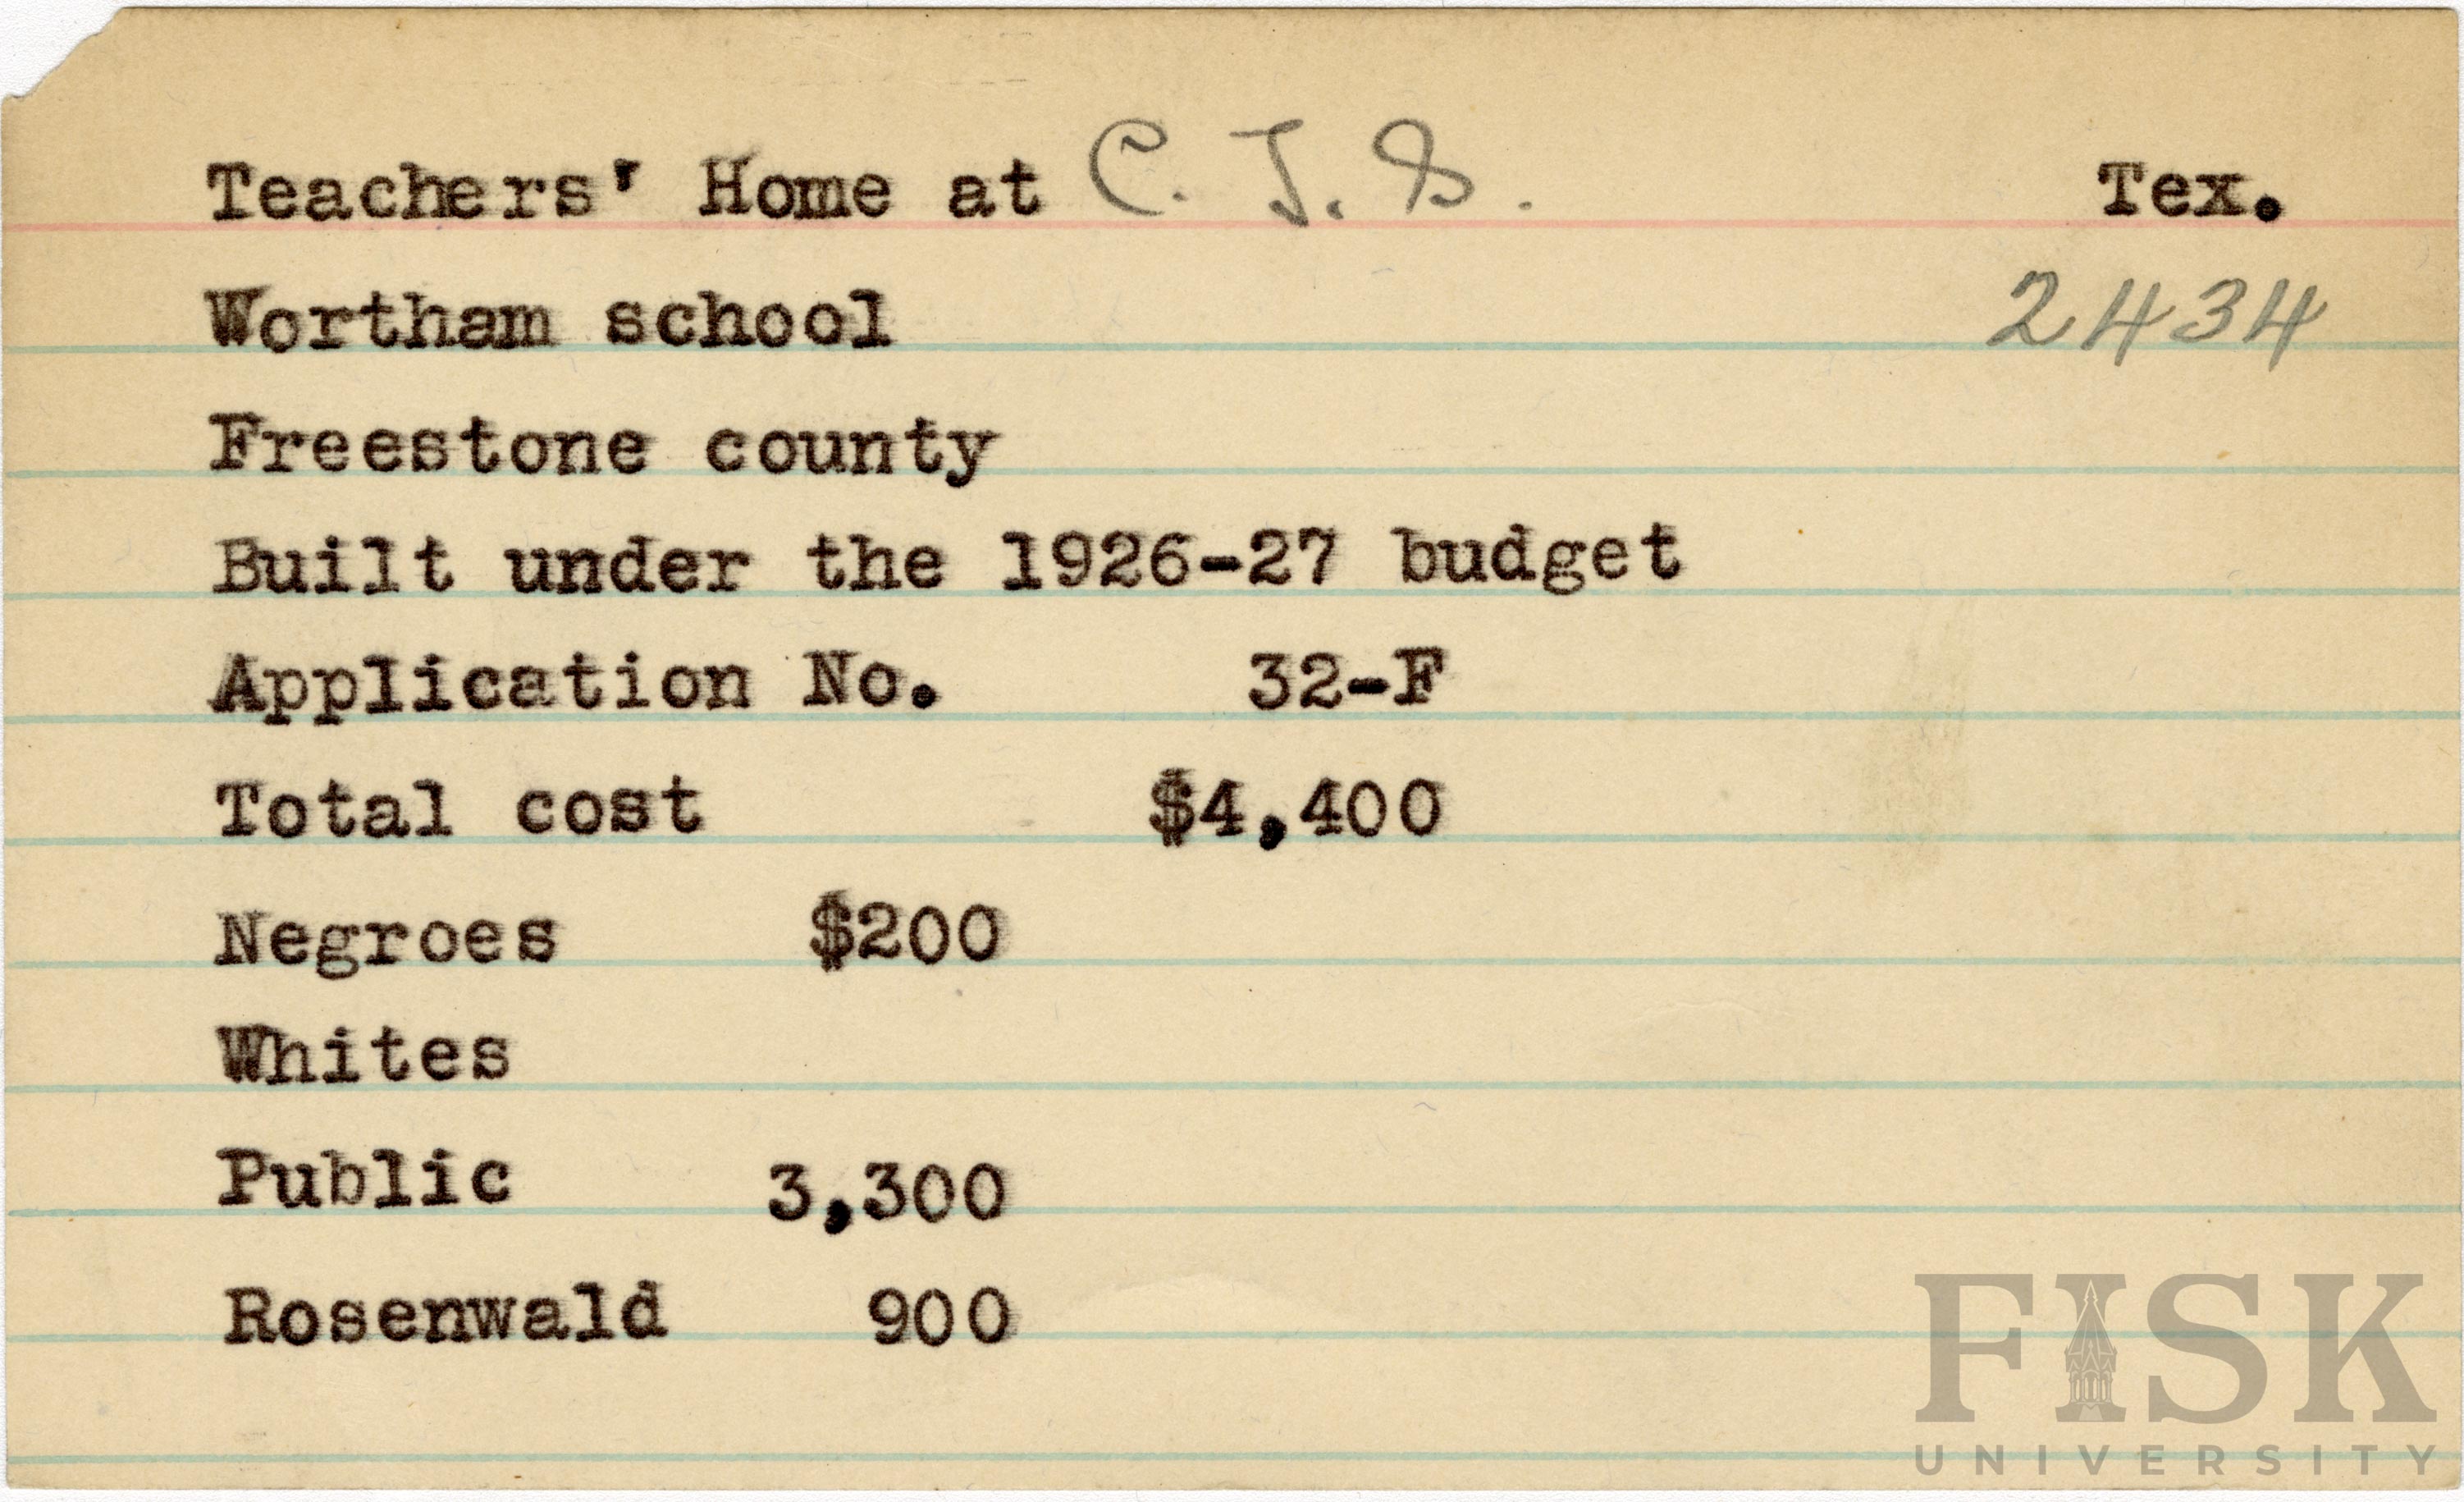 Teachers' Home at C. T. S. Tex.
Wortham school 2434
Freestone county
Built under the 1926-27 budget
Application No. 32-F
Total cost $4,400
Negroes $200
Whites
Public 3,300
Rosenwald 900
FISK
UNIVERSITY